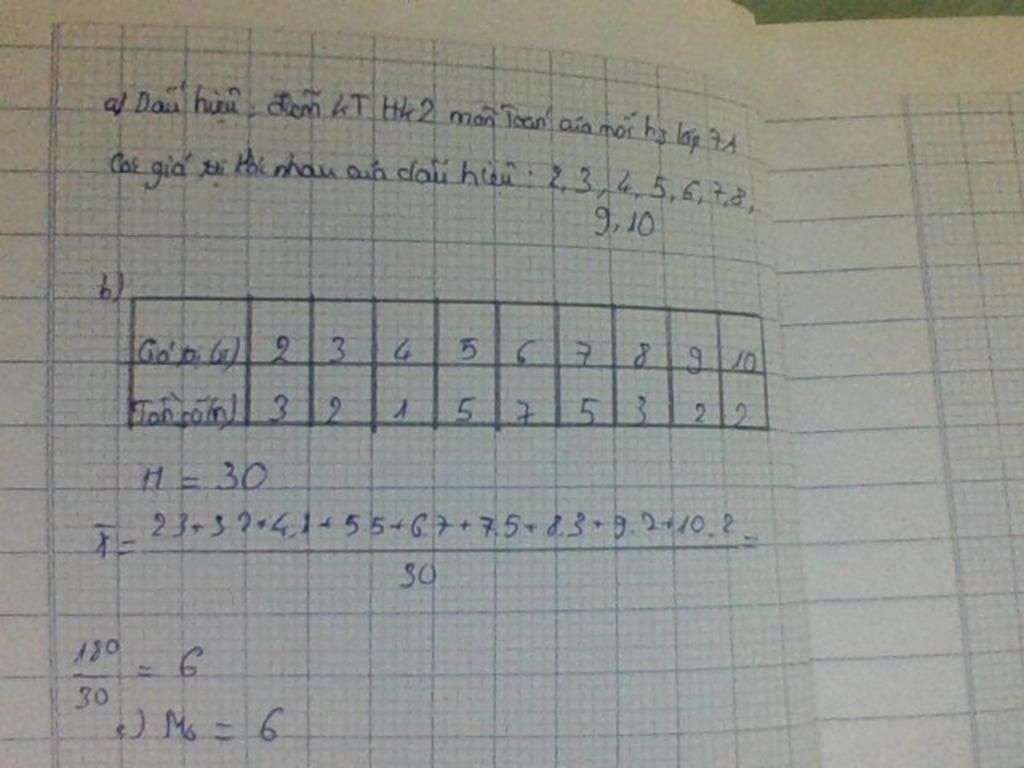 a) Dấu hiệu: điểm KT HK2 môn Toán của mỗi hs lớp 7A
Các giá trị khác nhau của dấu hiệu: 2, 3, 4, 5, 6, 7, 8,
9, 10
b)
Giá trị (x) 2 3 4 5 6 7 8 9 10
Tần số (n) 3 2 1 5 7 5 3 2 2
N = 30
X̄ = 2.3+3.2+4.1+5.5+6.7+7.5+8.3+9.2+10.2 =
30
180
= 6
30
c) M₀ = 6